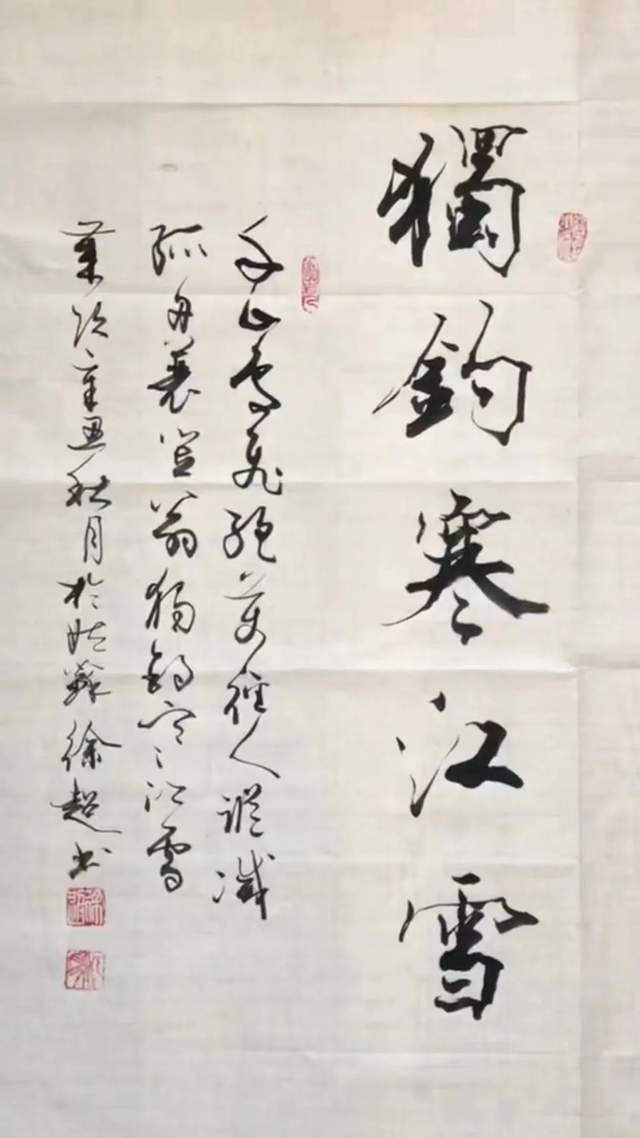 獨釣寒江雪
千山鳥飛絕萬徑人蹤滅
孤舟蓑笠翁独釣寒江雪
歲次辛丑秋月於姑蘇徐超书